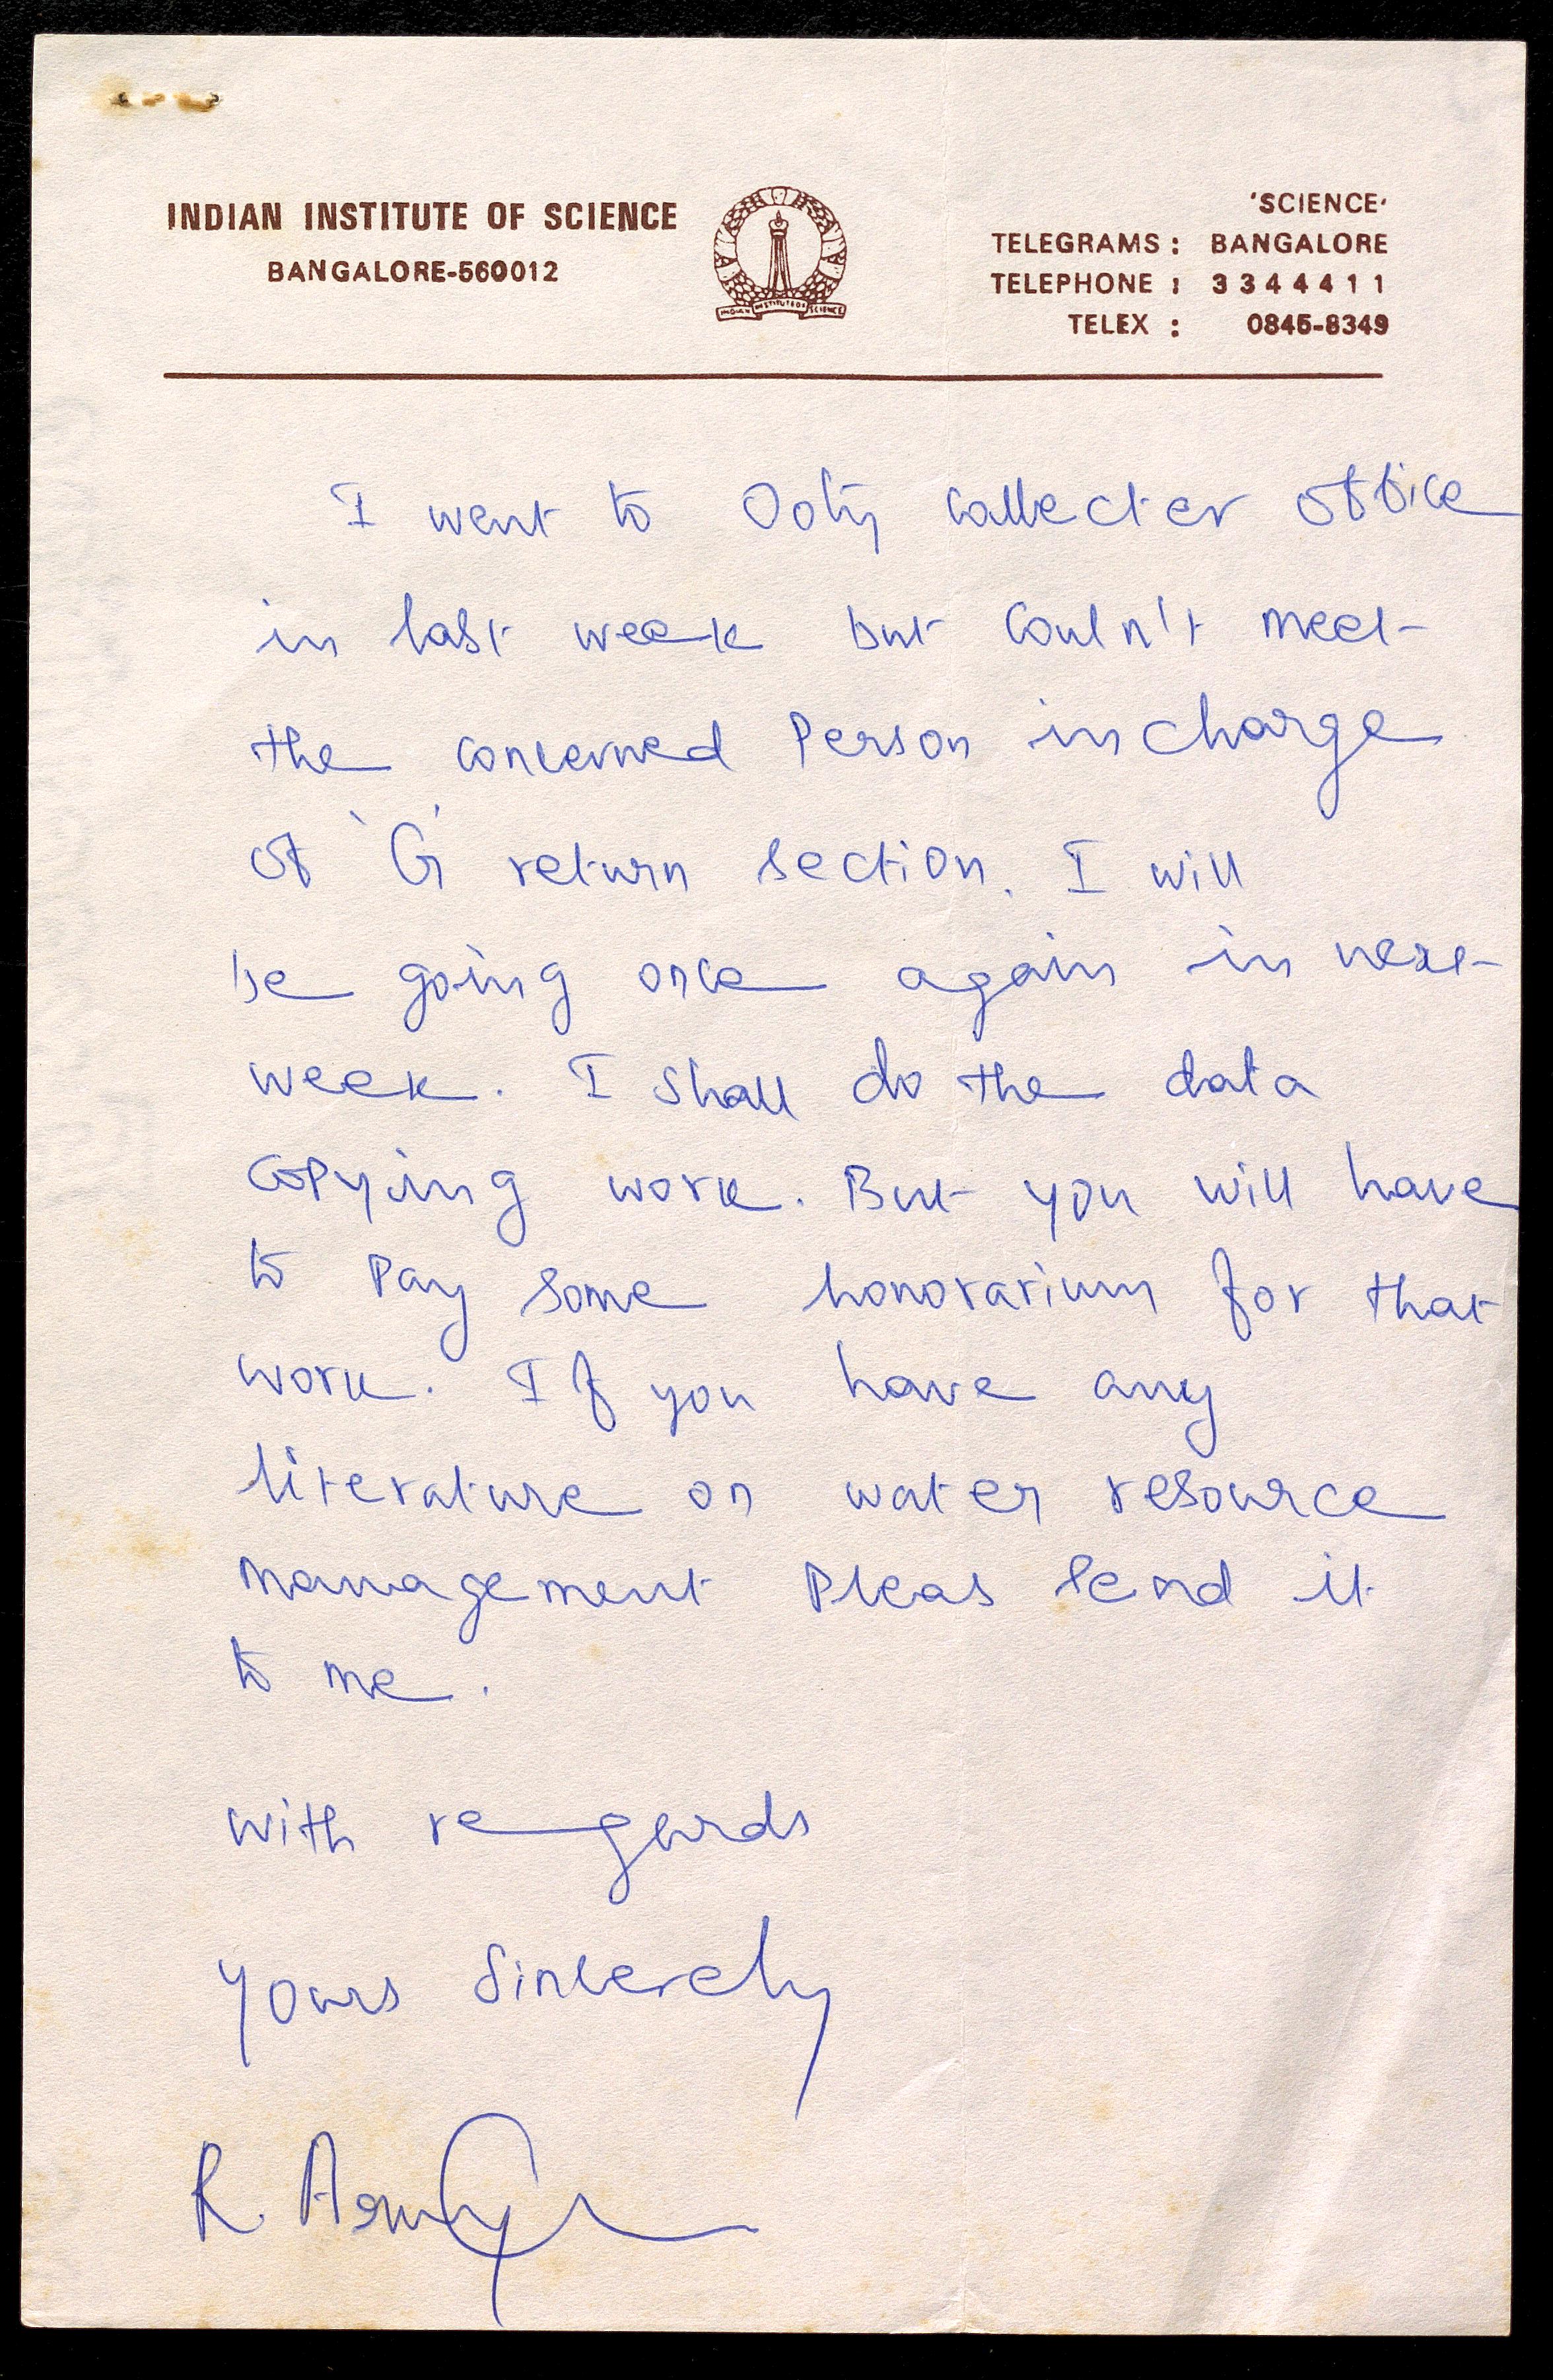 INDIAN INSTITUTE OF SCIENCE
BANGALORE-560012
INDIAN INSTITUTE OF SCIENCE
'SCIENCE'
TELEGRAMS : BANGALORE
TELEPHONE : 3344411
TELEX : 0845-8349
I went to Ooty collecter office
in last week but Couln't meet
the concerned Person incharge
of 'G' return section. I will
be going once again in next
week. I shall do the data
copying work. But you will have
to pay some honorarium for that
work. If you have any
literature on water resource
management Pleas send it
to me.
with regards
yours sincerely
R.